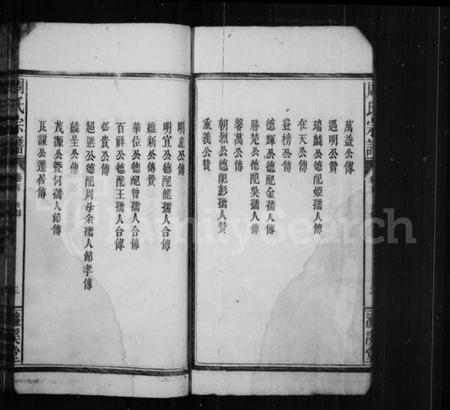 萬益公傳
遇明公贊
瑞麟公德配姬孺人傳
在天公傳
登榜公傳
德輝公德配金孺人傳
勝楚公德配吳孺人傳
馨萬公傳
朝烈公德配彭孺人贊
重義公贊
周氏宗譜
濂溪堂
明遠公傳
明宜公德配龍孺人合傳
維新公傳贊
華位公德配曾孺人合傳
百祥公德配王孺人合傳
必貴公傳
超選公德配周母余孺人節孝傳
麟圭公傳
茂源公暨何孺人節傳
良謀公進喜傳
周氏宗譜
濂溪堂
FamilySearch